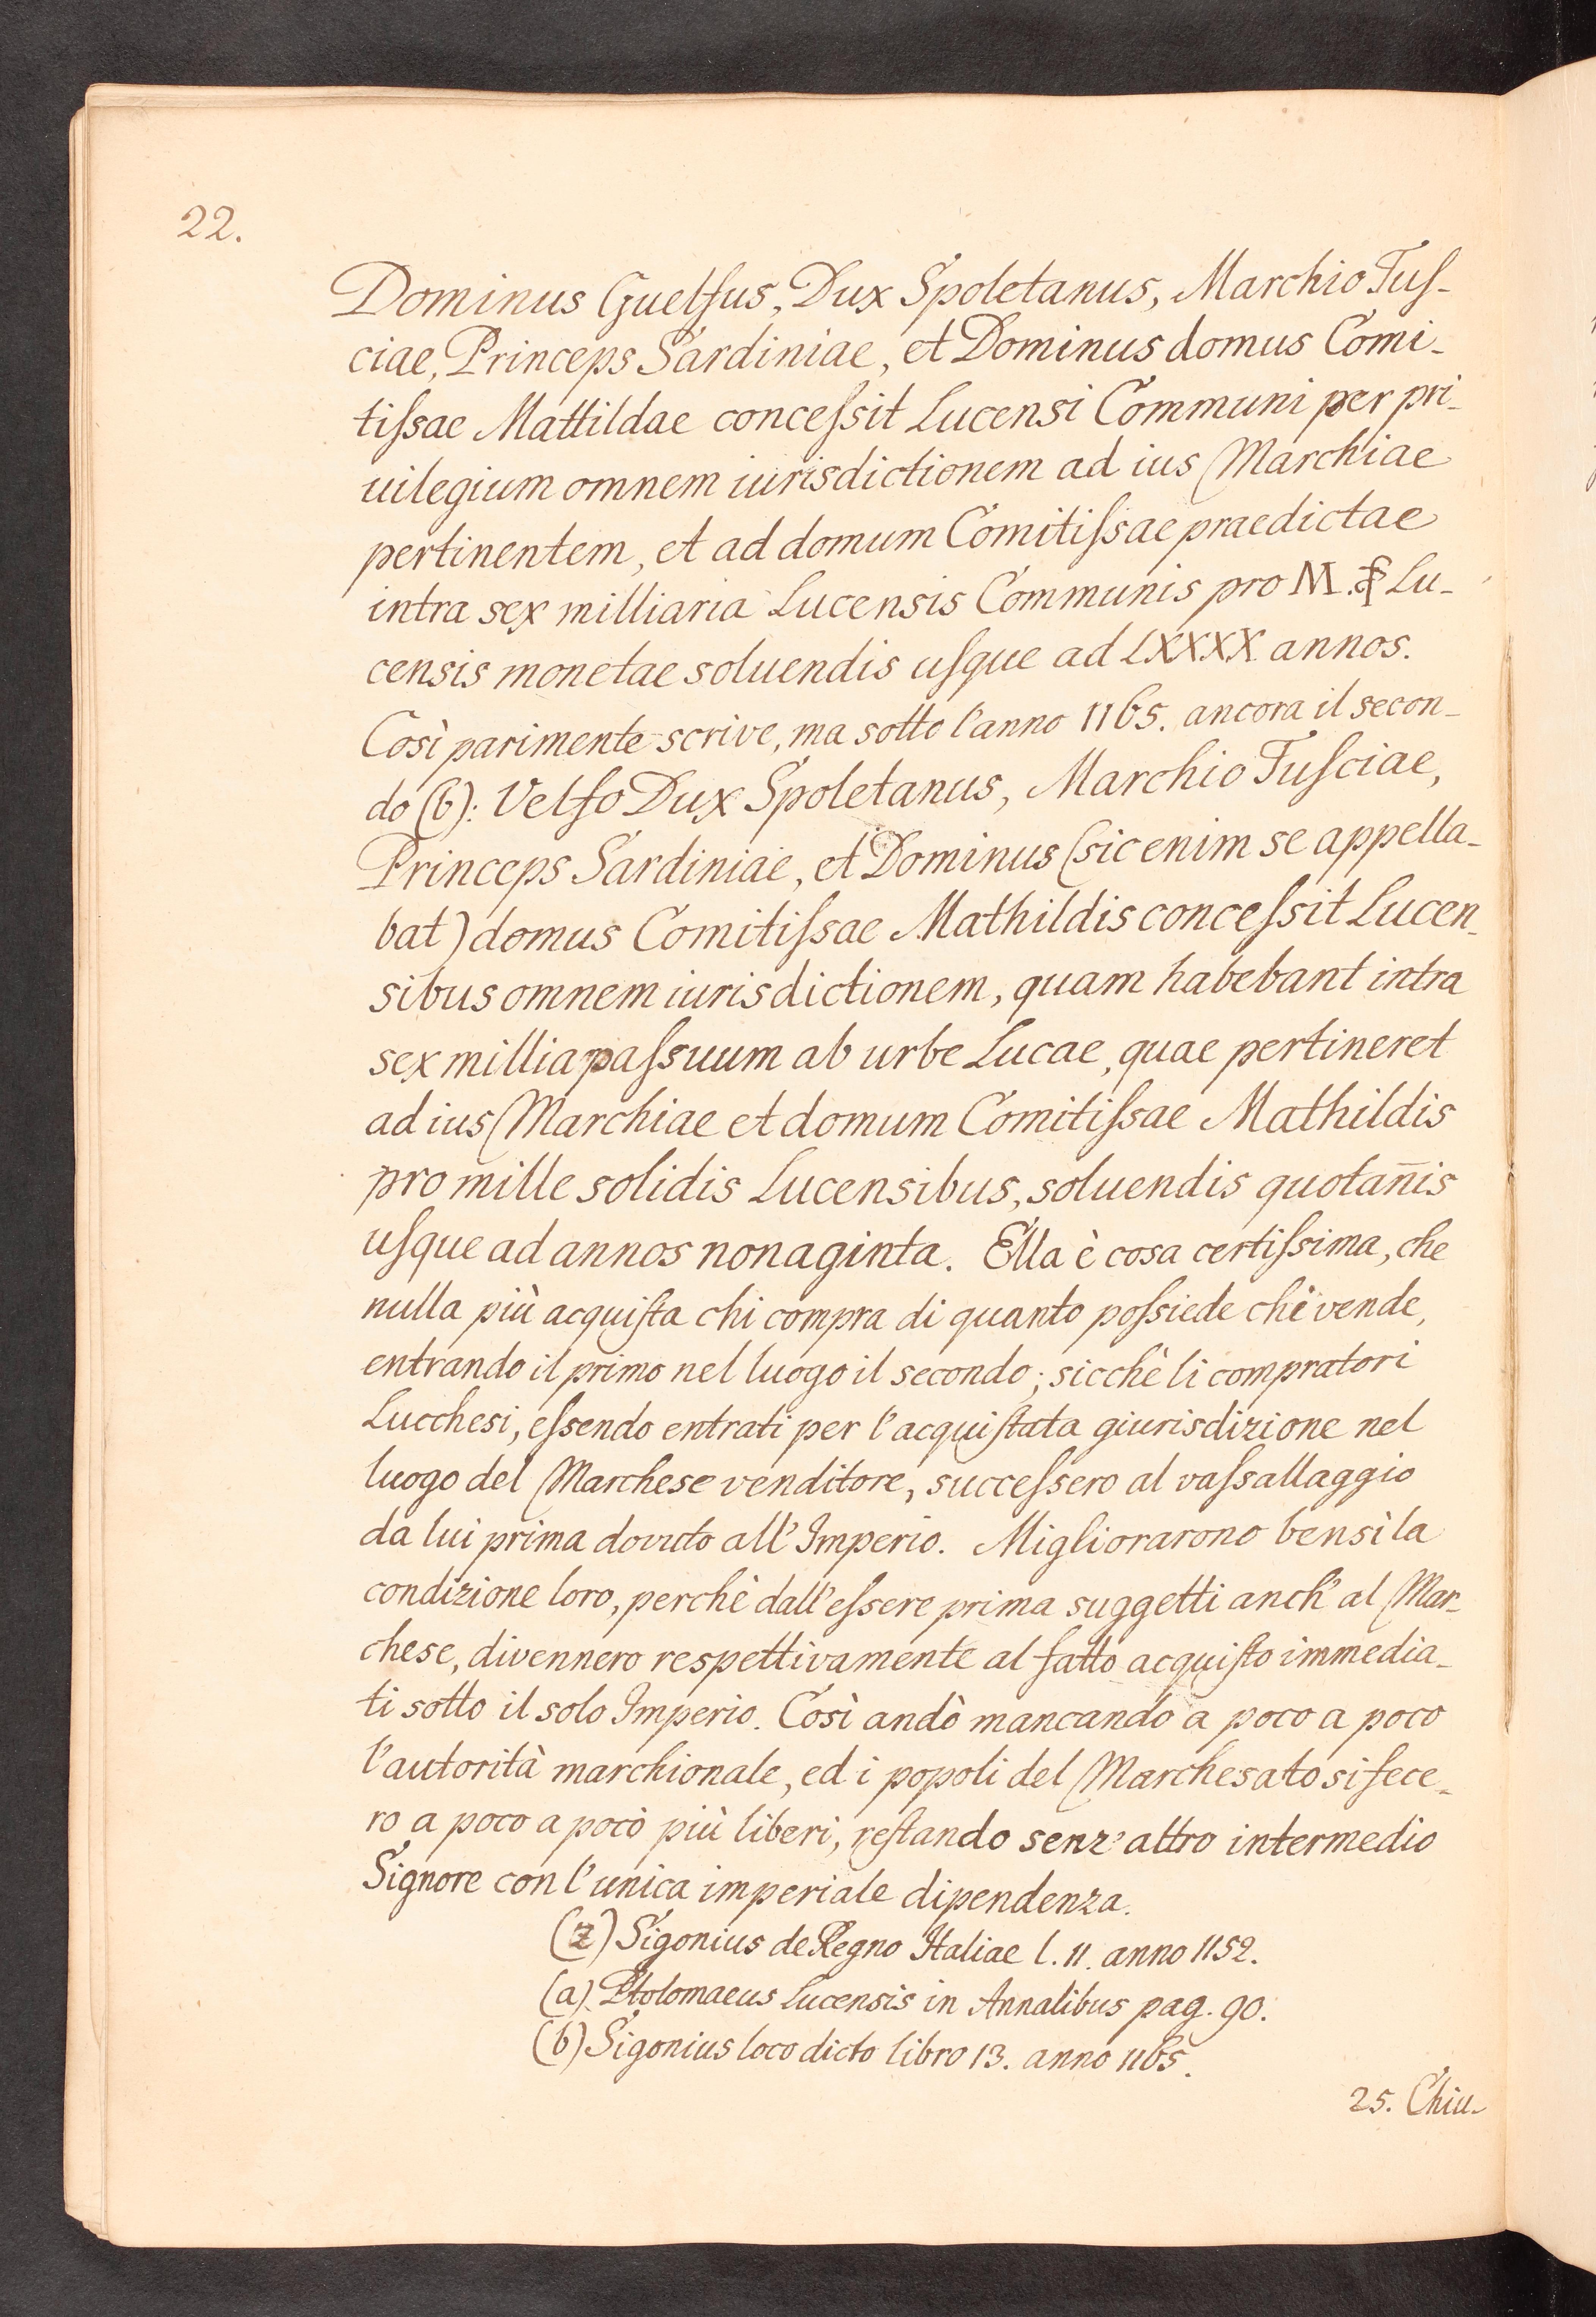 22.
Dominus Guelfus, Dux Spoletanus, Marchio Tuſ-
ciae, Princeps Sardiniae, et Dominus domus Comi-
tiſsae Mattildae conceſsit Lucensi Communi per pri-
uilegium omnem iurisdictionem ad ius Marchiae
pertinentem, et ad domum Comitiſsae praedictae
intra sex milliaria Lucensis Communis pro M. Lu-
censis monetae soluendis uſque ad LXXXX annos.
Così parimente scrive, ma sotto l'anno 1165. ancora il secon-
do (b): Velfo Dux Spoletanus, Marchio Tuſciae,
Princeps Sardiniae, et Dominus (sic enim se appella-
bat) domus Comitiſsae Mathildis conceſsit Lucen-
sibus omnem iurisdictionem, quam habebant intra
sex millia paſsuum ab urbe Lucae, quae pertineret
ad ius Marchiae et domum Comitiſsae Mathildis
pro mille solidis Lucensibus, soluendis quotan̄is
uſque ad annos nonaginta. Ella è cosa certiſsima, che
nulla più acquiſta chi compra di quanto poſsiede chi vende,
entrando il primo nel luogo il secondo; sicchè li compratori
Lucchesi, eſsendo entrati per l'acquiſtata giurisdizione nel
luogo del Marchese venditore, succeſsero al vaſsallaggio
da lui prima dovuto all'Imperio. Migliorarono bensì la
condizione loro, perchè dall'eſsere prima suggetti anch'al Mar-
chese, divennero respettivamente al fatto acquiſto immedia-
ti sotto il solo Imperio. Così andò mancando a poco a poco
l'autorità marchionale, ed i popoli del Marchesato si fece-
ro a poco a poco più liberi, reſtando senz'altro intermedio
Signore con l'unica imperiale dipendenza.
(z) Sigonius de Regno Italiae l. 11. anno 1152.
(a) Ptolomaeus Lucensis in Annalibus pag. 90.
(b) Sigonius loco dicto libro 13. anno 1165.
25. Chiu-